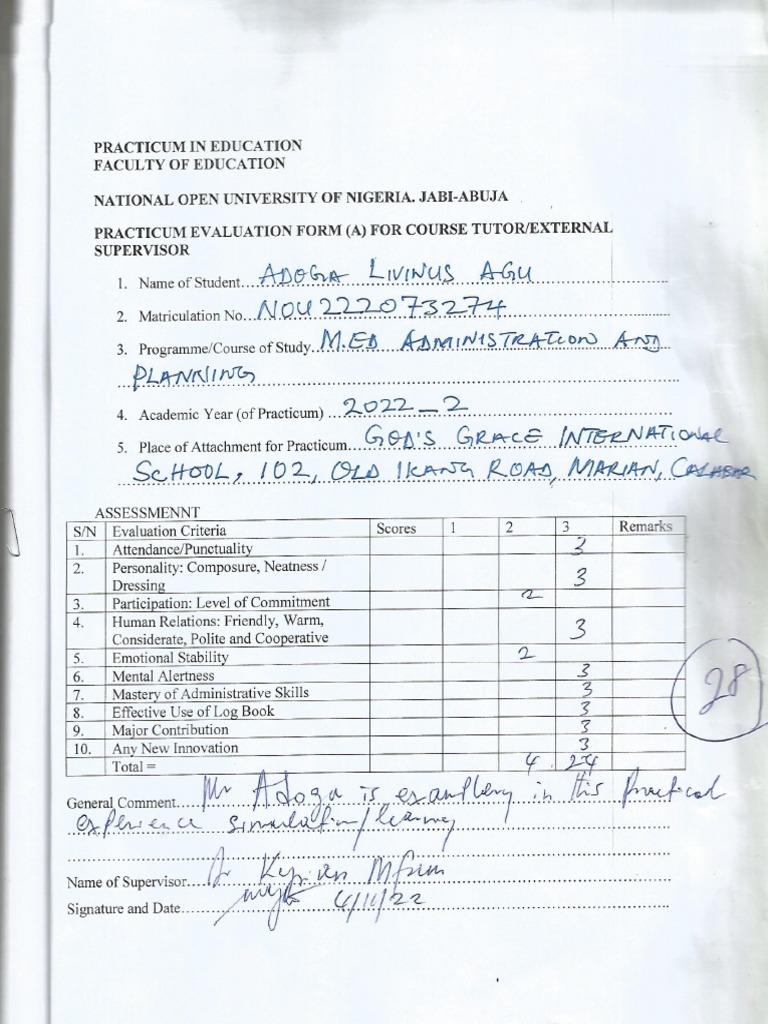 PRACTICUM IN EDUCATION
FACULTY OF EDUCATION
NATIONAL OPEN UNIVERSITY OF NIGERIA. JABI-ABUJA
PRACTICUM EVALUATION FORM (A) FOR COURSE TUTOR/EXTERNAL
SUPERVISOR
1. Name of Student ADOGA LIVINUS AGU
2. Matriculation No. NOU222073274
3. Programme/Course of Study M.ED ADMINISTRATION AND
PLANNING
4. Academic Year (of Practicum) 2022_2
5. Place of Attachment for Practicum GOD'S GRACE INTERNATIONAL
SCHOOL, 102, OLD IKANG ROAD, MARIAN, CALABAR
ASSESSMENNT
S/N Evaluation Criteria Scores 1 2 3 Remarks
1. Attendance/Punctuality 3
2. Personality: Composure, Neatness /
Dressing 3
3. Participation: Level of Commitment 2
4. Human Relations: Friendly, Warm,
Considerate, Polite and Cooperative 3
5. Emotional Stability 2
6. Mental Alertness 3
7. Mastery of Administrative Skills 3
8. Effective Use of Log Book 3
9. Major Contribution 3
10. Any New Innovation 3
Total = 4 24
28
General Comment Mr Adoga is examplery in this practical
experience simulation/learning
Name of Supervisor Dr
Signature and Date 4/11/22